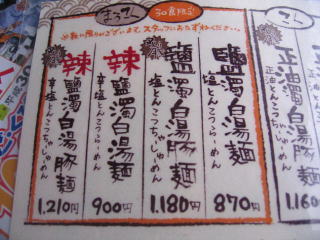 まろさん
30食限定
※数に限りがございます。スタッフにおたずねください。
鹽濁白湯麺
塩とんこつらーめん
870円
鹽濁白湯豚麺
塩とんこつちゃーしゅーめん
1.180円
辣鹽濁白湯麺
辛・塩とんこつらーめん
900円
辣鹽濁白湯豚麺
辛・塩とんこつちゃーしゅーめん
1.210円
正油とんこつちゃーしゅーめん
1.160